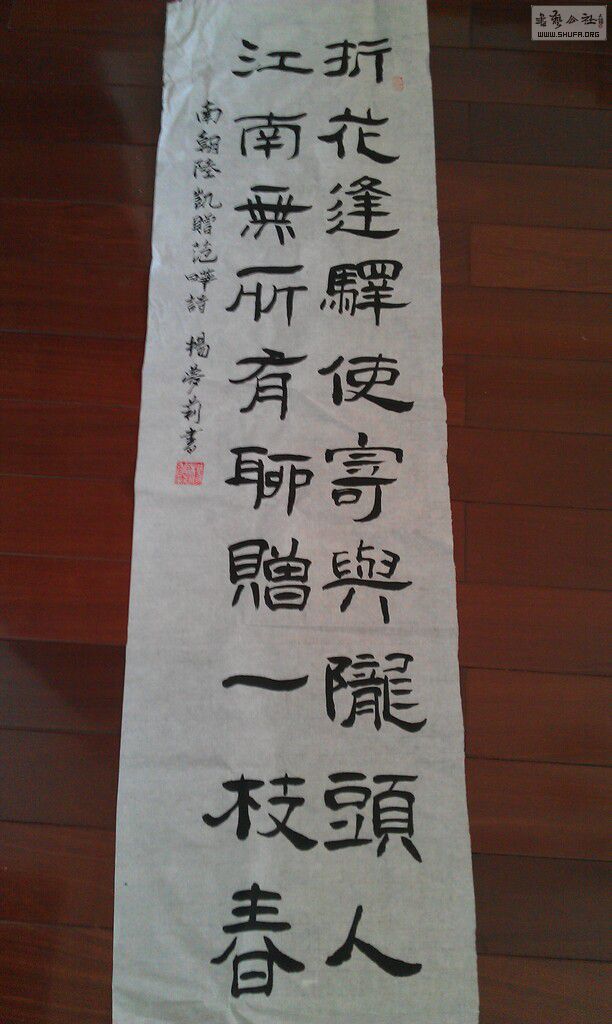 折花逢驛使寄與隴頭人
江南無所有聊贈一枝春
南朝陸凱贈范曄詩 楊夢莉書
書藝公社
WWW.SHUFA.ORG